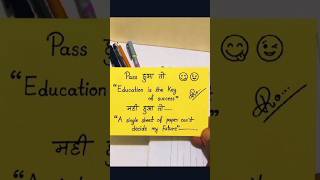 Pass हुआ तो 😋😉
"Education is the Key
of success"
नही हुआ तो---
"A single sheet of paper can't
decide my future"